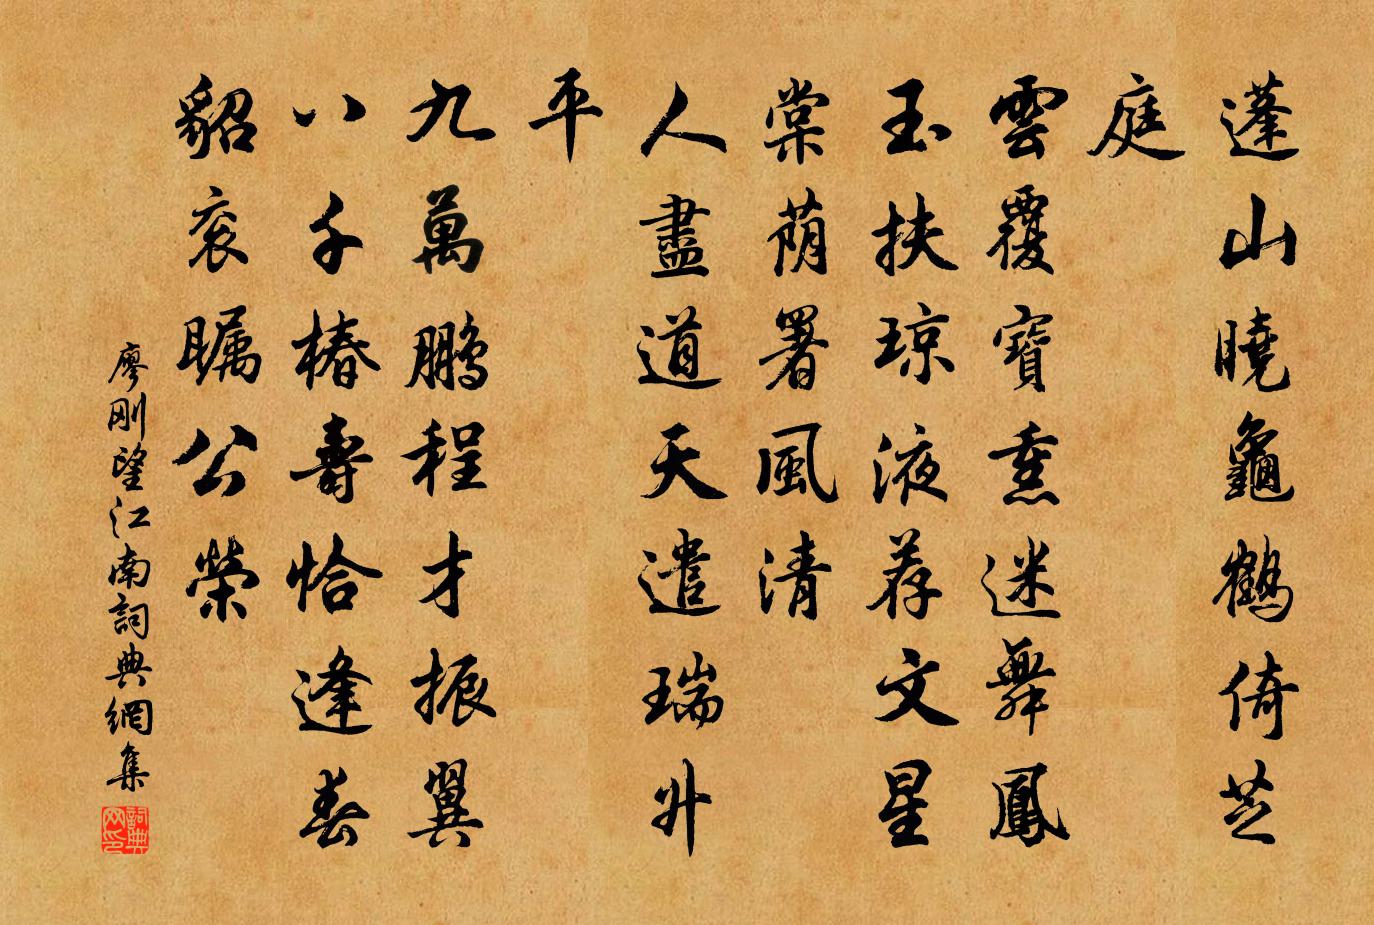 蓬山曉龜鶴倚芝
庭
雲覆寶熏迷舞鳳
玉扶琼液荐文星
棠荫署風清
人盡道天遣瑞升
平
九萬鵬程才振翼
八千椿壽恰逢春
貂衮瞩公榮
廖刚望江南詞典網集
詞典网印